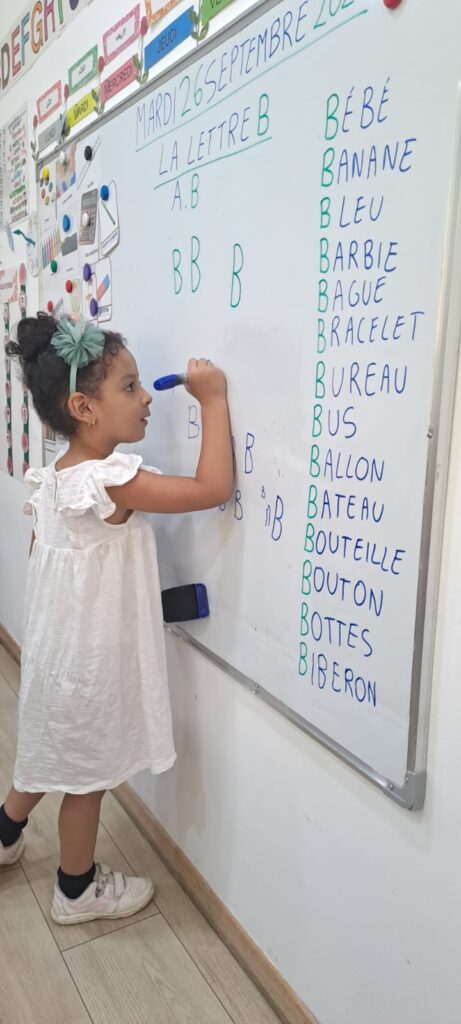 DEFGH
MARDI
MERCREDI
JEUDI
MARDI 26 SEPTEMBRE
LA LETTRE B
A.B
B B B
B
B
B
B
BÉBÉ
BANANE
BLEU
BARBIE
BAGUE
BRACELET
BUREAU
BUS
BALLON
BATEAU
BOUTEILLE
BOUTON
BOTTES
BIBERON